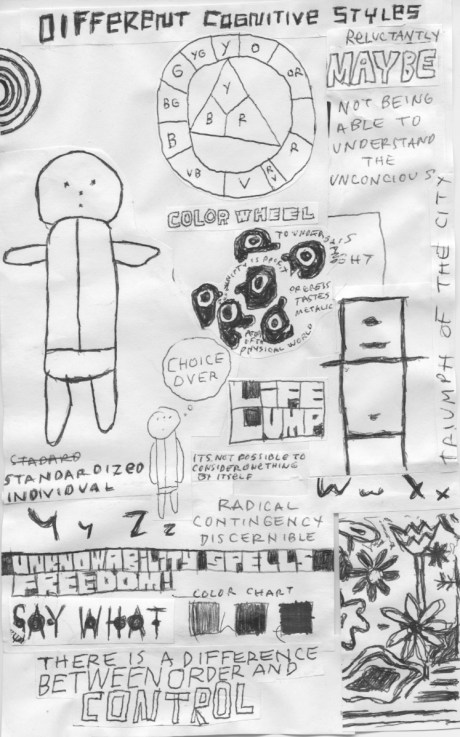 DIFFERENT COGNITIVE STYLES
RELUCTANTLY
MAYBE
NOT BEING
ABLE TO
UNDERSTAND
THE
UNCONCIOUS
TRIUMPH OF THE CITY
Y
O
OR
R
RV
V
VB
B
BG
G
YG
Y
B
R
COLOR WHEEL
TASTES
METALIC
PHYSICAL WORLD
CHOICE
OVER
LIFE
DUMP
ITS NOT POSSIBLE TO
CONSIDER ONE THING
BY ITSELF
STADARD
STANDARDIZED
INDIVIDUAL
W w X x
Y y Z z
RADICAL
CONTINGENCY
DISCERNIBLE
UNKNOWABILITY SPELLS
FREEDOM!
SAY WHAT
COLOR CHART
THERE IS A DIFFERENCE
BETWEEN ORDER AND
CONTROL